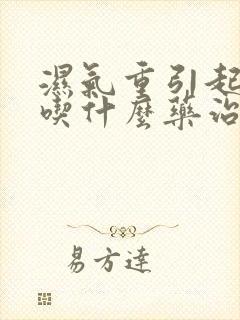 濕氣重引起
喫什麼藥治
易方達